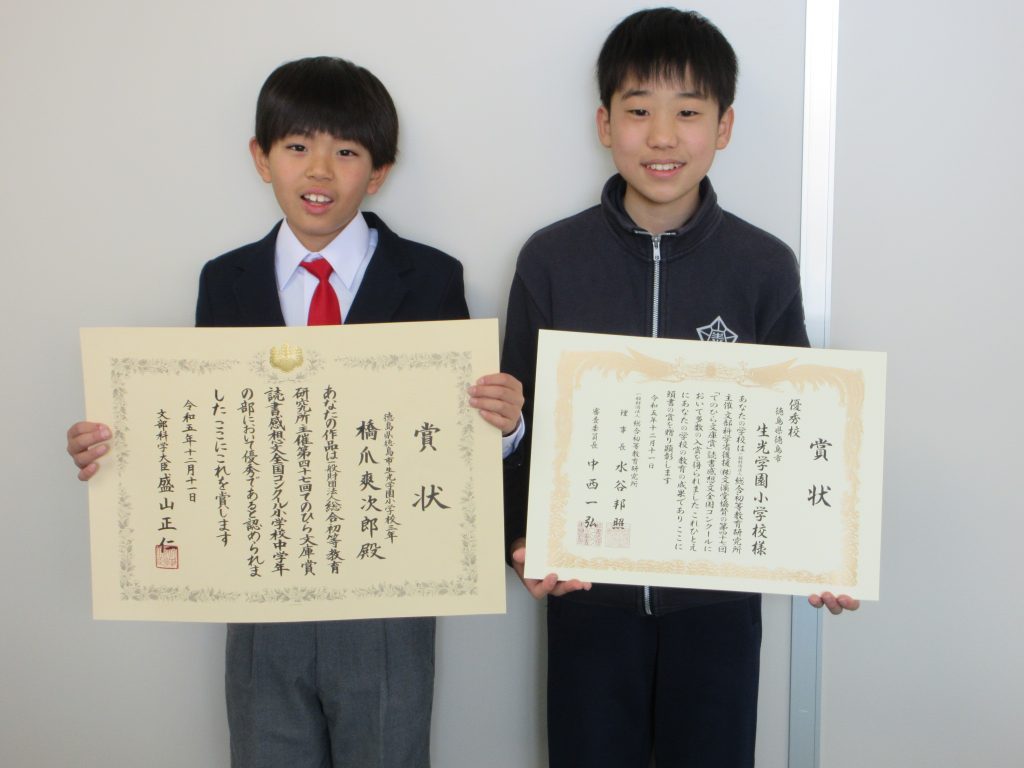 賞状
徳島県徳島市生光学園小学校三年
橋爪爽次郎殿
あなたの作品は一般財団法人総合初等教育
研究所主催第四十七回てのひら文庫賞
読書感想文全国コンクール小学校中学年
の部において優秀であると認められま
した ここにこれを賞します
令和五年十二月十一日
文部科学大臣 盛山正仁
賞状
優秀校
徳島県徳島市
生光学園小学校様
あなたの学校は一般財団法人総合初等教育研究所
主催文部科学省後援株式会社文溪堂協賛の第四十七回
「てのひら文庫賞」読書感想文全国コンクールに
おいて多数の入賞を得られました これひとえ
にあなたの学校の教育の成果であり ここに
頭書の賞を贈り顕彰します
令和五年十二月十一日
一般財団法人総合初等教育研究所
理事長 水谷邦照
審査委員長 中西一弘